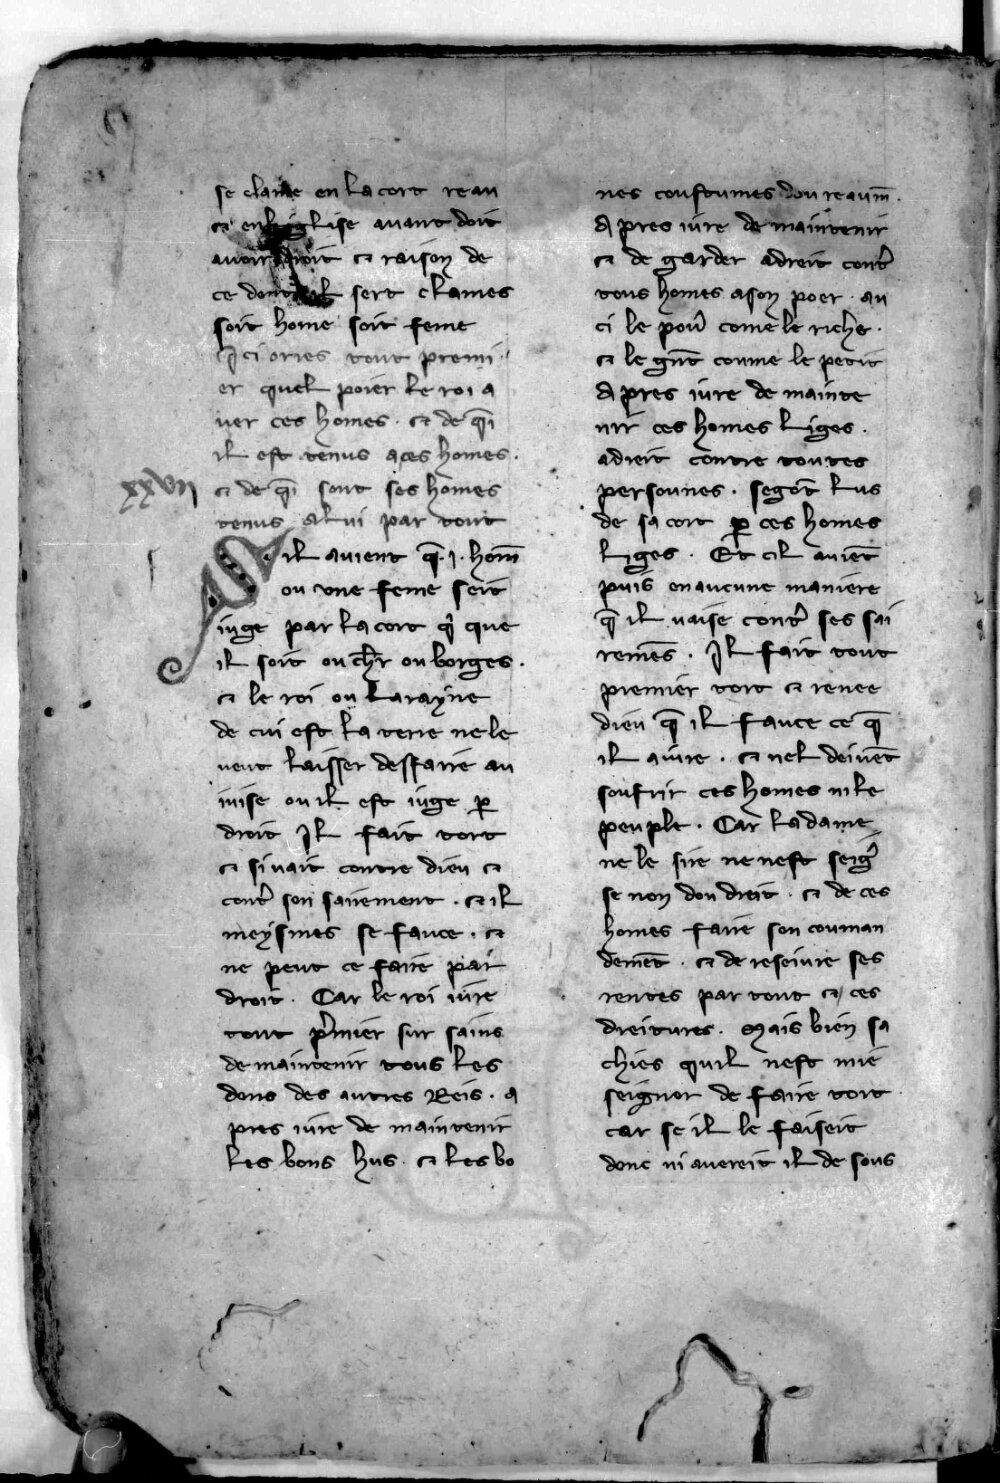 se clame en la cort reau
⁊ en liglise auant doit
auoir droit ⁊ raison de
ce dont il sert clames
soit home soit feme
Ici orres tout premi
er quel poier le roi a
uer ces homes · ⁊ de q̄i
il est tenus a ces homes ·
⁊ de q̄i sont ses homes
xxvii
tenus a lui par tout
S il auient q̄ · i · hom̄
ou vne feme seit
iuge par la cort q̉ que
il soit ou chr̄ ou borges ·
⁊ le roi ou la rayne
de cui est la terre ne le
veut laisser desfaire au
iuise ou il est iuge ꝑ
droit Il fait tort
⁊ si vait contre dieu ⁊
contr̉ son sairement · ⁊ il
meysmes se fauce · ⁊
ne peut ce faire par
droit · Car le roi iure
tout pr̉mier sur sains
de maintenir tous les
dons des autres Reis · a
pres iure de maintenir
les bons hus · ⁊ les bo
nes coustumes dou reaum̄ ·
A pres iure de maintenir
⁊ de garder a dreit contr̉
tous homes a son poer · au
ci le pour̉ come le riche ·
⁊ le gn̄t coume le petit
A pres iure de mainte
nir ces homes liges ·
a dreit contre toutes
persounes · segōt lus
de sa cort ꝑ ces homes
liges · Et cil auiēt
puis en aucune maniere
q̄ il vaise contr̉ ses sai
remēs · Il fait tout
premier tort ⁊ renee
dieu q̄ il fauce ce q̄
il a iure · ⁊ nel deiuēt
soufrir ces homes ni le
peuple · Car la dame
ne le sire ne nest seig̉
se non dou dreit · ⁊ de ces
homes faire son couman
demēt · ⁊ de reseiure ses
rentes par tout ⁊ ces
dreitures · Mais bien sa
chies quil nest mie
seignor de faire tort
car se il le faiseit
donc ni auereit il de sous